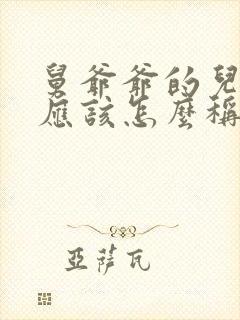 舅爺爺的兒
應該怎麼稱
亞薩瓦